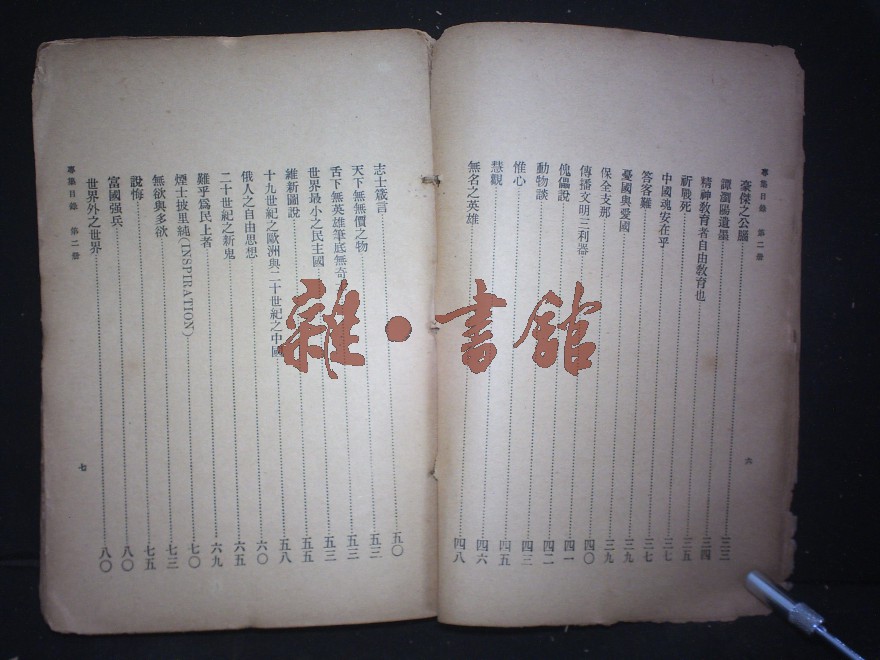 專集目錄 第二册
豪傑之公腦……三三
譚瀏陽遺墨……三四
精神教育者自由教育也……三五
祈戰死……三七
中國魂安在乎……三七
答客難……三九
憂國與愛國……三九
保全支那……四〇
傳播文明三利器……四一
傀儡說……四二
動物談……四三
惟心……四五
慧觀……四六
無名之英雄……四八
六
志士箴言……五〇
天下無無價之物……五二
舌下無英雄筆底無奇……五三
世界最小之民主國……五三
維新圖說……五五
十九世紀之歐洲與二十世紀之中國……五八
俄人之自由思想……六〇
二十世紀之新鬼……六五
難乎爲民上者……六九
煙士披里純(INSPIRATION)……七〇
無欲與多欲……七三
說悔……七五
富國强兵……八〇
世界外之世界……八〇
專集目錄 第二册
七
雜·書館